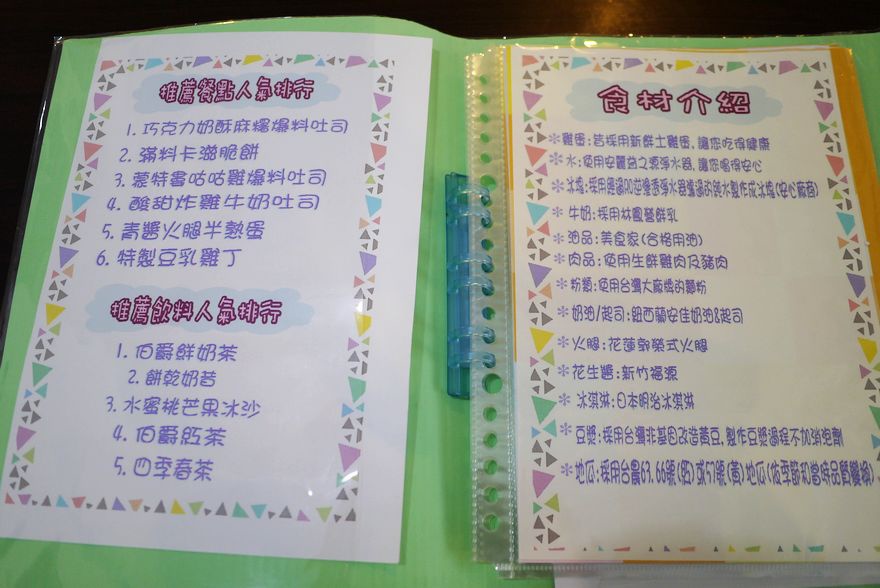 推薦餐點人氣排行
1. 巧克力奶酥麻糬爆料吐司
2. 滿料卡滋脆餅
3. 蒙特婁咕咕雞爆料吐司
4. 酸甜炸雞牛奶吐司
5. 青醬火腿半熟蛋
6. 特製豆乳雞丁
推薦飲料人氣排行
1. 伯爵鮮奶茶
2. 餅乾奶昔
3. 水蜜桃芒果冰沙
4. 伯爵紅茶
5. 四季春茶
食材介紹
*雞蛋:皆採用新鮮土雞蛋,讓您吃得健康
*水:使用安麗益之源淨水器,讓您喝得安心
*冰塊:採用經過RO逆滲透淨水器濾過的純水製作成冰塊(安心廠商)
*牛奶:採用林鳳營鮮乳
*油品:美食家(合格用油)
*肉品:使用生鮮雞肉及豬肉
*粉類:使用台灣大廠牌的麵粉
*奶油/起司:紐西蘭安佳奶油&起司
*火腿:花蓮郭榮式火腿
*花生醬:新竹福源
*冰淇淋:日本明治冰淇淋
*豆漿:採用台灣非基因改造黃豆,製作豆漿過程不加消泡劑
*地瓜:採用台農63.66號(紅)或57號(黃)地瓜(依季節和當時品質變換)